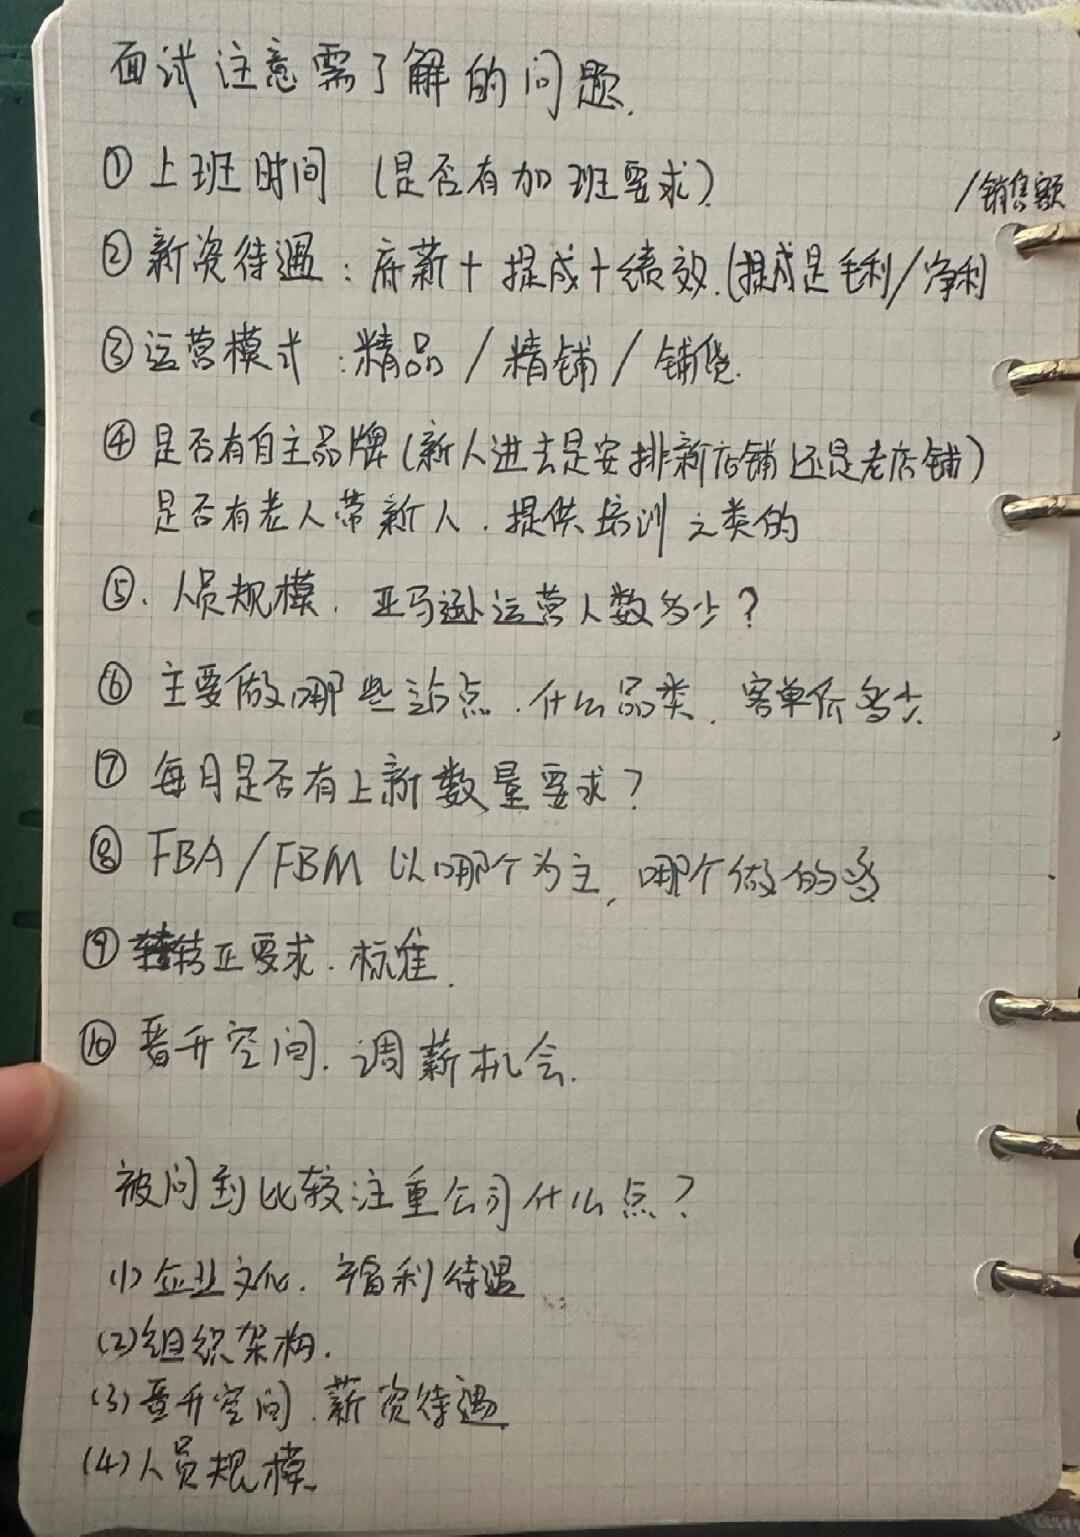 面试注意需了解的问题.
① 上班时间 (是否有加班要求)
② 新资待遇: 底薪+提成+绩效.(提成是毛利/净利
/销售额
③ 运营模式:精品/精铺/铺货.
④ 是否有自主品牌(新人进去是安排新店铺还是老店铺)
是否有老人带新人.提供培训之类的
⑤. 人员规模. 亚马逊运营人数多少?
⑥ 主要做哪些站点.什么品类.客单价多少
⑦ 每月是否有上新数量要求?
⑧ FBA/FBM 以哪个为主,哪个做的多
⑨ 转正要求.标准.
⑩ 晋升空间.调薪机会.
被问到比较注重公司什么点?
(1) 企业文化. 福利待遇
(2) 组织架构.
(3) 晋升空间.薪资待遇
(4) 人员规模.